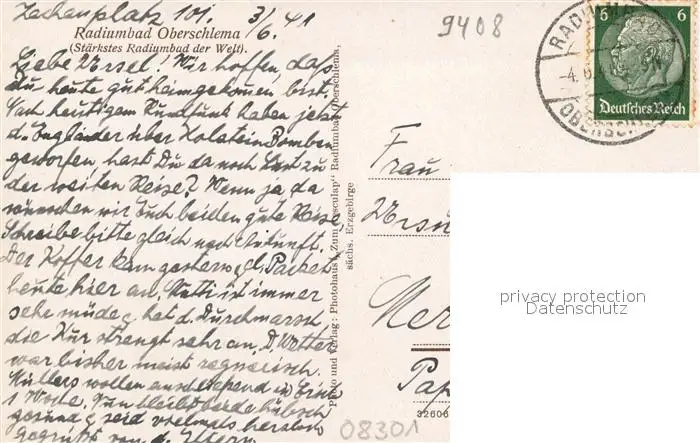 Zechenplatz 101. 3/6. 41
Radiumbad Oberschlema
(Stärkstes Radiumbad der Welt).
Liebe Ursel! Wir hoffen, daß
du heute gut heimgekommen bist.
Nach heutigem Rundfunk haben jetzt
d. Engländer über Holstein Bomben
geworfen hast Du da noch Lust zu
der weiten Reise? Wenn ja, da
wünschen wir Euch beiden gute Reise
Schreibe bitte gleich nach Ankunft.
Der Koffer kam gestern, d. Packet
heute hier an. Vatti ist immer
sehr müde, hat d. Durchmarsch,
die Kur strengt sehr an. D. Wetter
war bisher meist regnerisch.
Müllers wollen anschließend in
1 Woche. Nun bleibt beide hübsch
gesund & seid vielmals herzlich
gegrüßt von d. Eltern
Photo und Verlag: Photohaus "Zum Aesculap" Radiumbad Oberschlema,
sächs. Erzgebirge
9408
6 6
Deutsches Reich
RADIUMBAD
-4.6.
OBERSCHLEMA
Frau
Ursu
Mer
Pap
32606
08301
privacy protection
Datenschutz